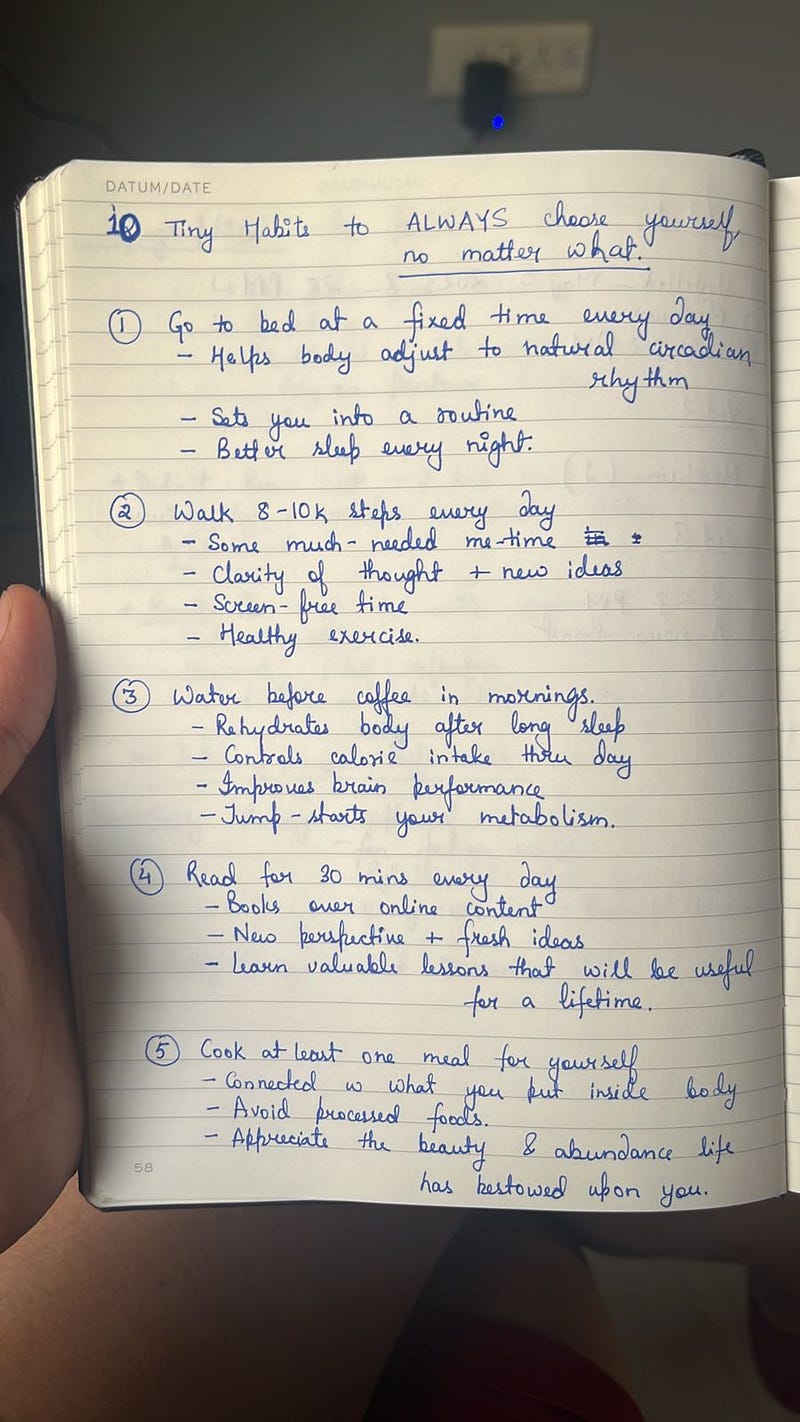 DATUM/DATE
10 Tiny Habits to ALWAYS choose yourself,
no matter what.
1 Go to bed at a fixed time every day
- Helps body adjust to natural circadian
rhythm
- Sets you into a routine
- Better sleep every night.
2 Walk 8-10k steps every day
- Some much-needed me-time
- Clarity of thought + new ideas
- Screen-free time
- Healthy exercise.
3 Water before coffee in mornings.
- Rehydrates body after long sleep
- Controls calorie intake thru day
- Improves brain performance
- Jump-starts your metabolism.
4 Read for 30 mins every day
- Books over online content
- New perspective + fresh ideas
- Learn valuable lessons that will be useful
for a lifetime.
5 Cook at least one meal for yourself
- Connected w what you put inside body
- Avoid processed foods.
- Appreciate the beauty & abundance life
has bestowed upon you.
58